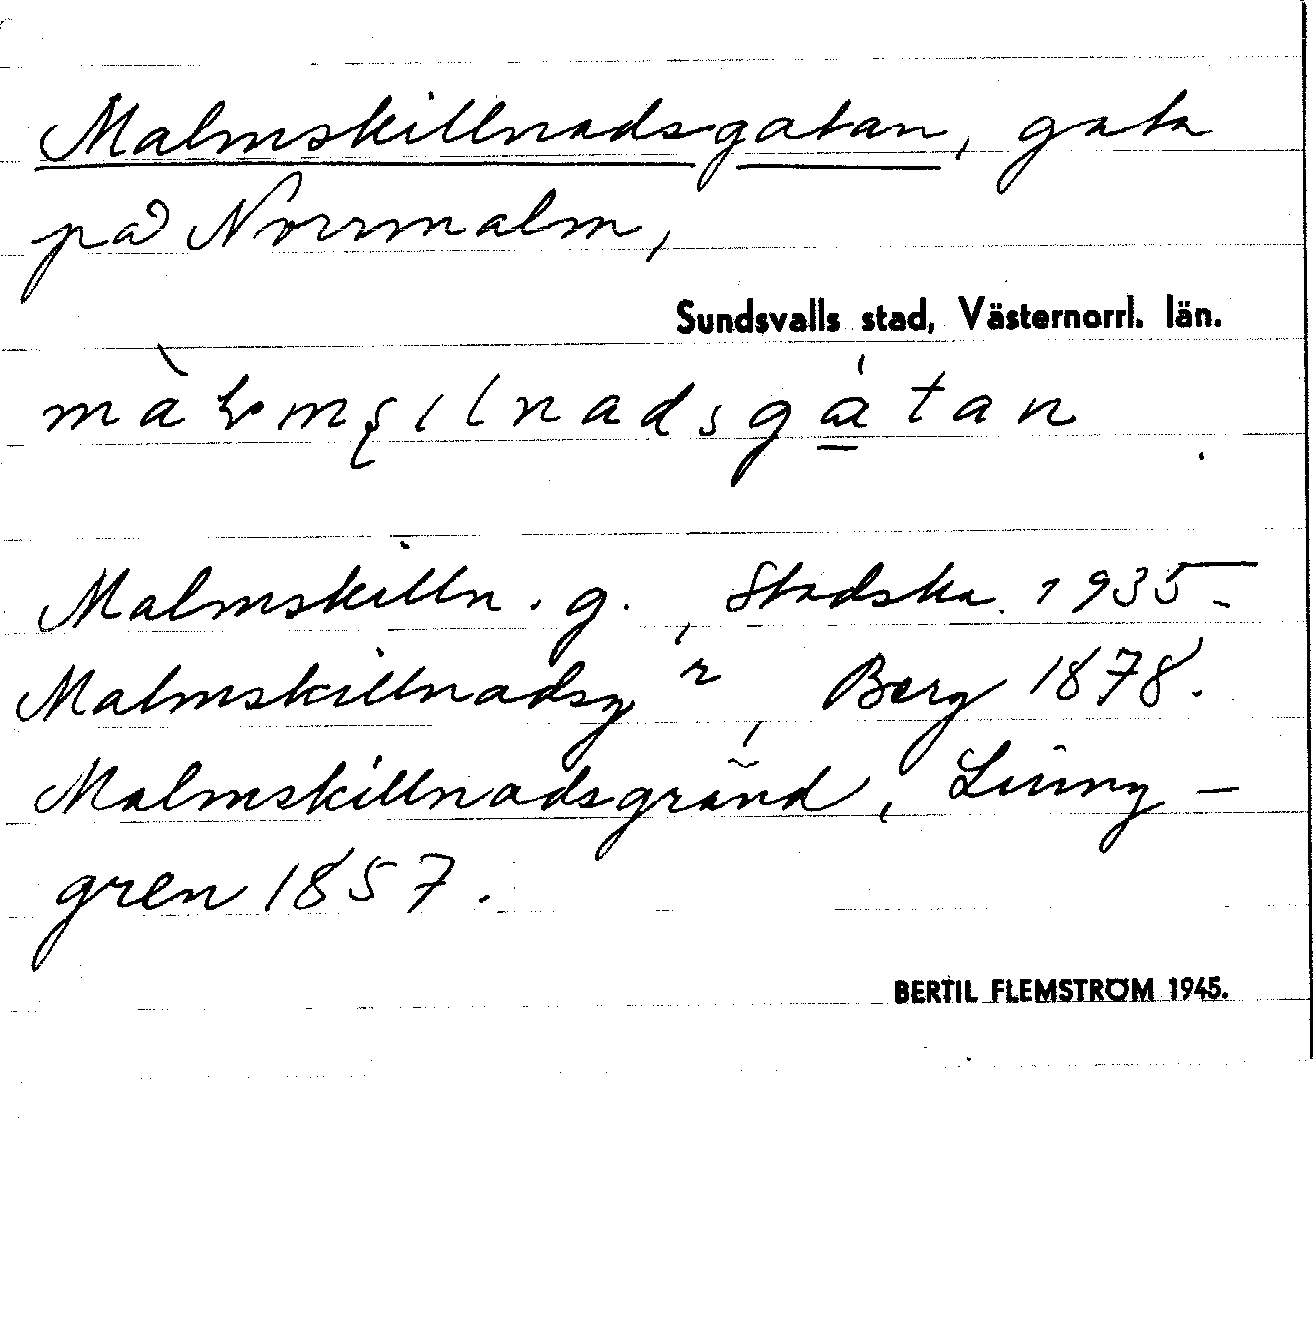 Malmskillnadsgatan, gata
på Norrmalm,
Sundsvalls stad, Västernorrl. län.
Malmskilln. g., Stadska. 1935
Malmskillnadsgn, Berg 1878.
Malmskillnadsgränd, Ljung-
gren 1857.
BERTIL FLEMSTRÖM 1945.